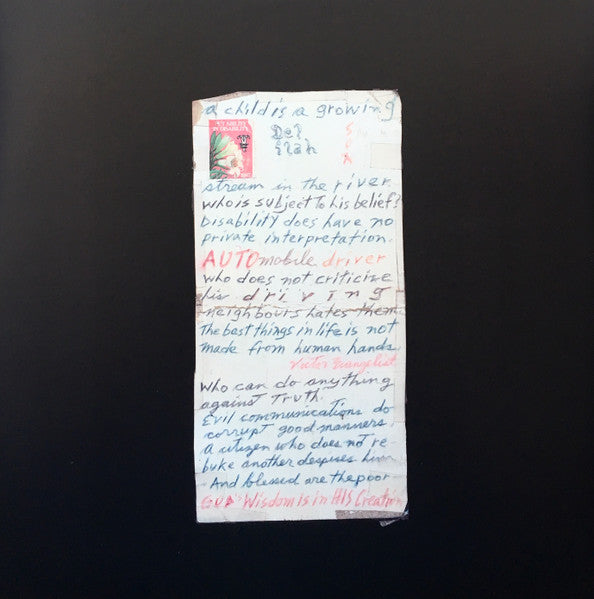 a child is a growing
stream in the river.
who is subject to his belief?
Disability does have no
private interpretation.
AUTOmobile driver
who does not criticize
his driving
neighbours hates them
The best things in life is not
made from human hands.
Victor Evangelist
Who can do anything
against Truth.
Evil communications do
corrupt good manners.
A citizen who does not re-
buke another despises him
And blessed are the poor
GOD'S Wisdom is in HIS Creation